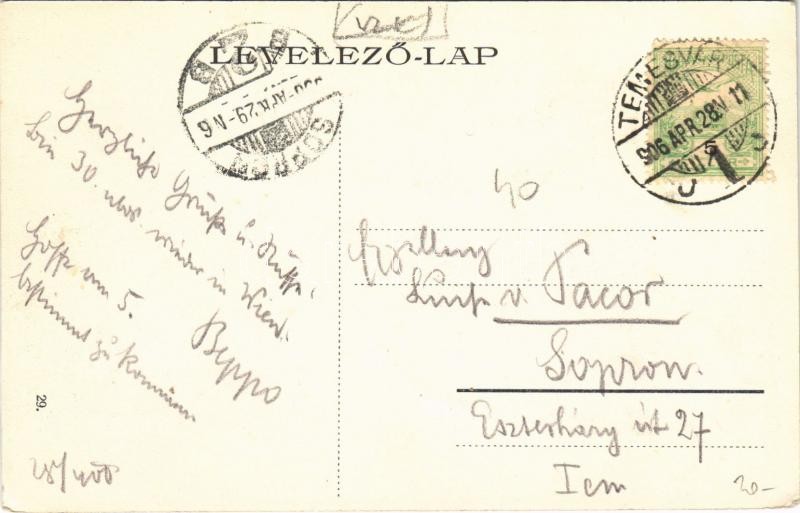 LEVELEZŐ-LAP
SOPRON
906 APR. 29. N. 6
B 2 B
TEMESVÁR 1
906 APR. 28. N 11
5
1
Herzliche Grüße u. Küsse,
bin 30. wieder in Wien.
Hoffe am 5.
bestimmt zu kommen
Beppo
40
v. Pacor
Sopron.
Eszterházy út 27
I em
29.
20-